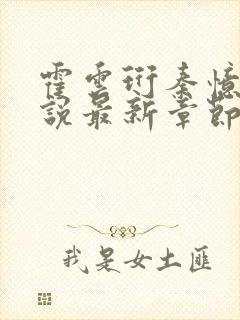 霍雲衍秦憶
說最新章節
我是女土匪